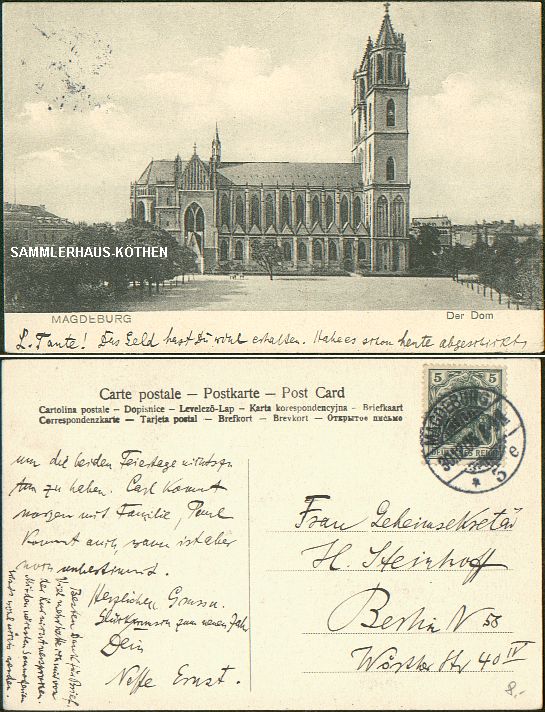 SAMMLERHAUS-KÖTHEN
MAGDEBURG
Der Dom
L. Tante! Das Geld hast Du wohl erhalten. Habe es schon heute abgeschickt,
Carte postale – Postkarte – Post Card
Cartolina postale – Dopisnice – Levelező-Lap – Karta korespondencyjna – Briefkaart
Correspondenzkarte – Tarjeta postal – Brefkort – Brevkort – Открытое письмо
5 5
DEUTSCHES REICH
MAGDEBURG
5 e
um die beiden Feiertage nichts zu
tun zu haben. Carl kommt
morgen mit Familie, Paul
kommt auch, wann ist aber
noch unbestimmt.
Herzlichen Gruss u.
Glückwunsch zum neuen Jahr
Dein
Neffe Ernst.
Besten Dank für Brief.
Frau Geheimsekretär
H. Steinhoff
Berlin N 58
Wörther Str 40 IV
8.-